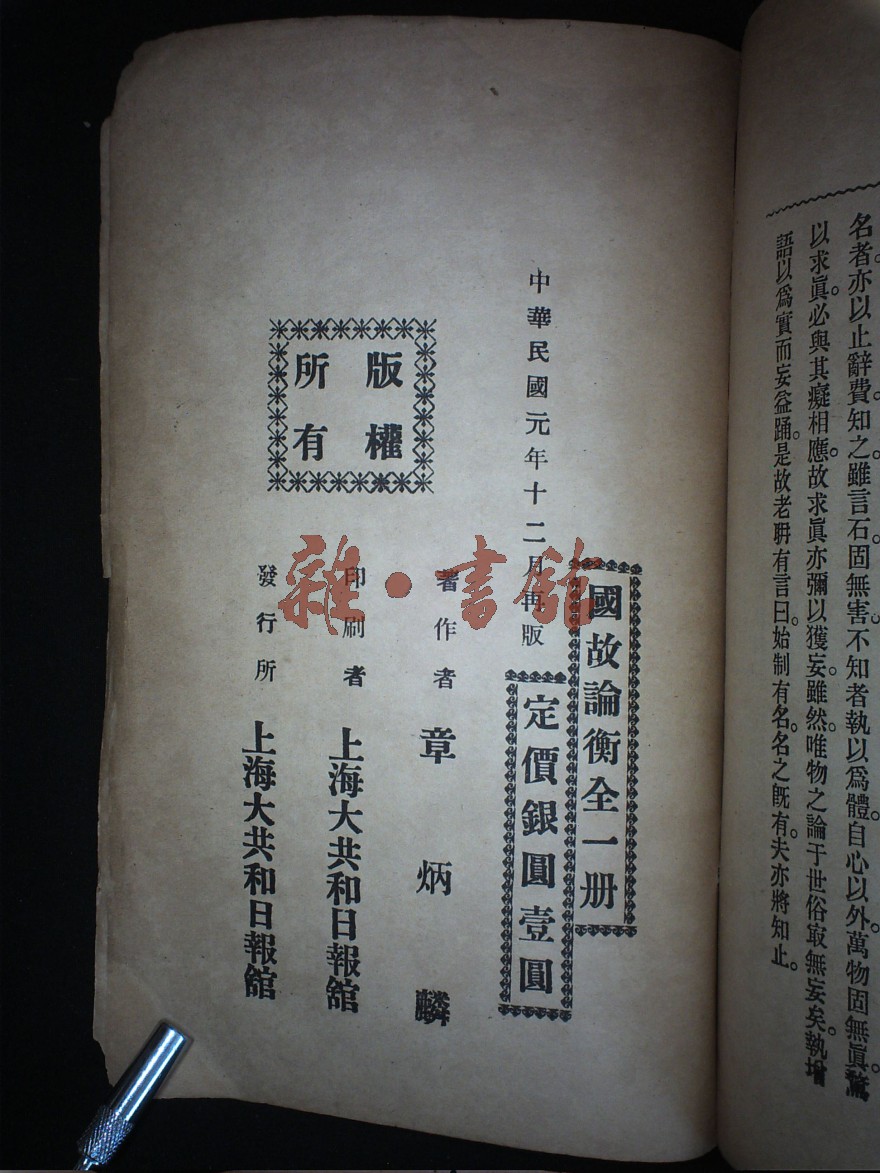 名者亦以止辭費。知之。雖言石。固無害。不知者執以爲體。自心以外。萬物固無眞。驀
以求眞。必與其癡相應。故求眞亦彌以獲妄。雖然。唯物之論于世俗取無妄矣。執增
語以爲實而妄益踊。是故老聃有言曰。始制有名。名之旣有。夫亦將知止。
國故論衡全一册
定價銀圓壹圓
中華民國元年十二月再版
版權
所有
著作者 章炳麟
印刷者 上海大共和日報館
發行所 上海大共和日報館
雜·書館